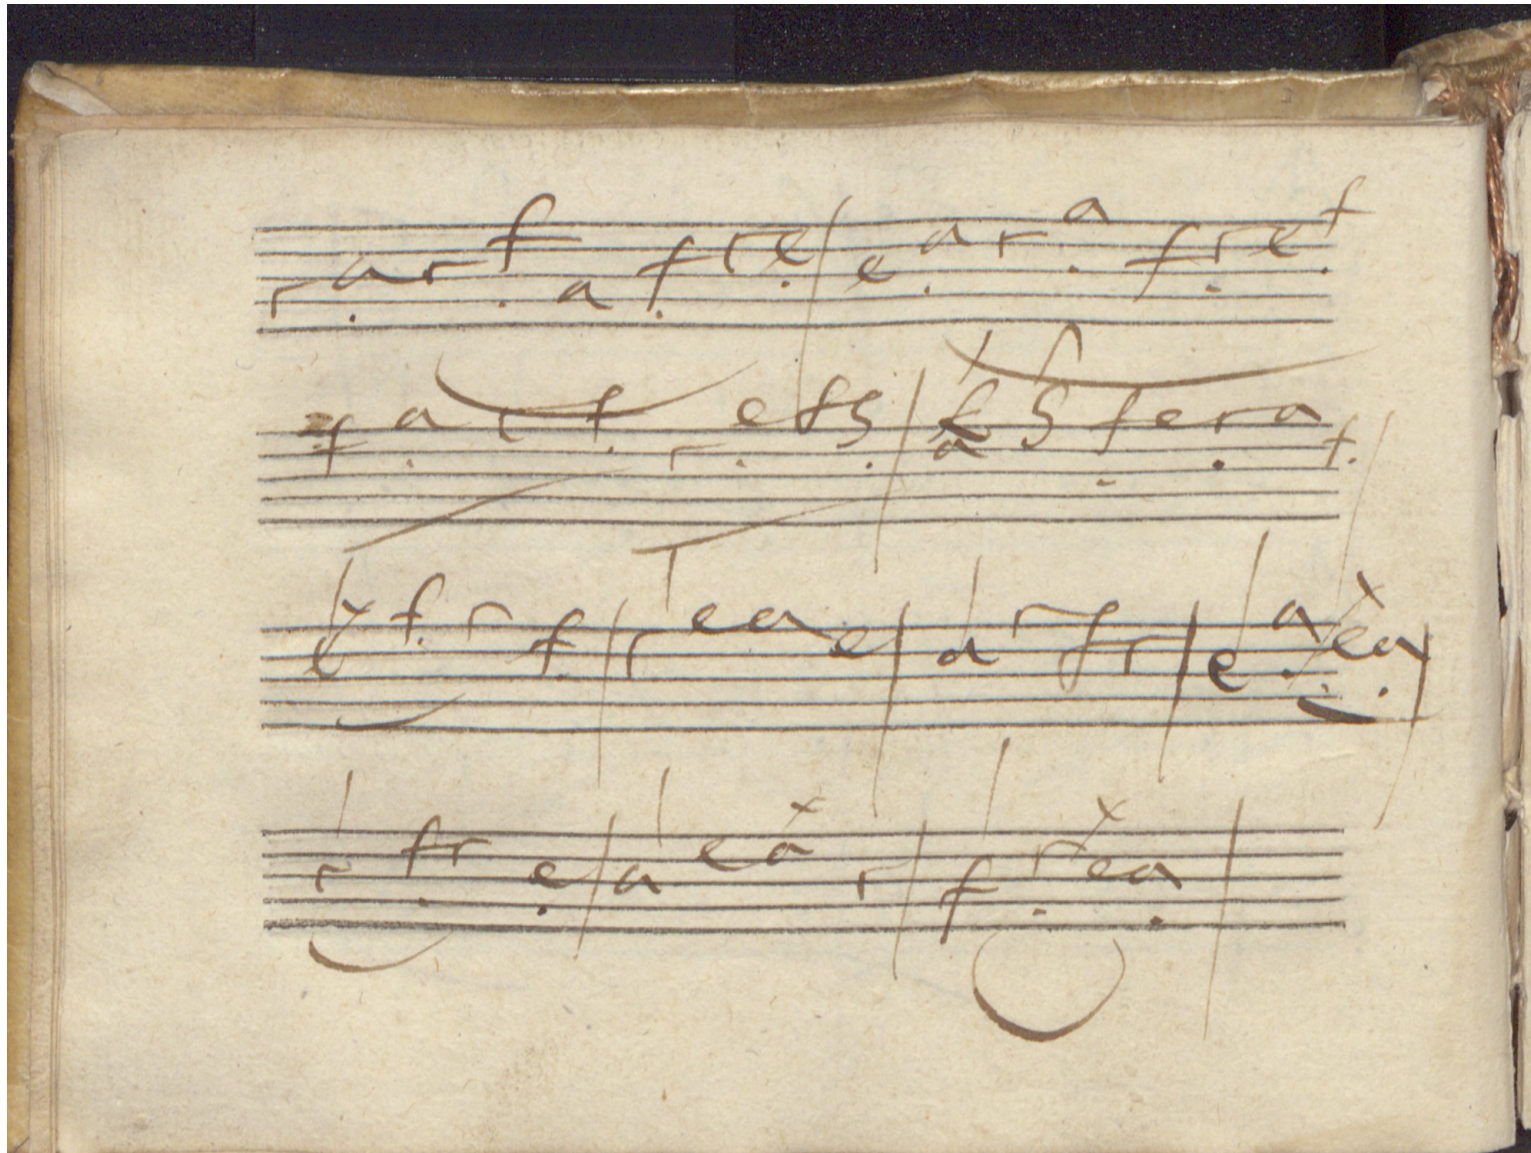 r a r f a f r e e a r a f r e f
f a r f r e f g a g f e r a f
f r f r e a e a r f r e a e a
r f r e a e a r f r e a